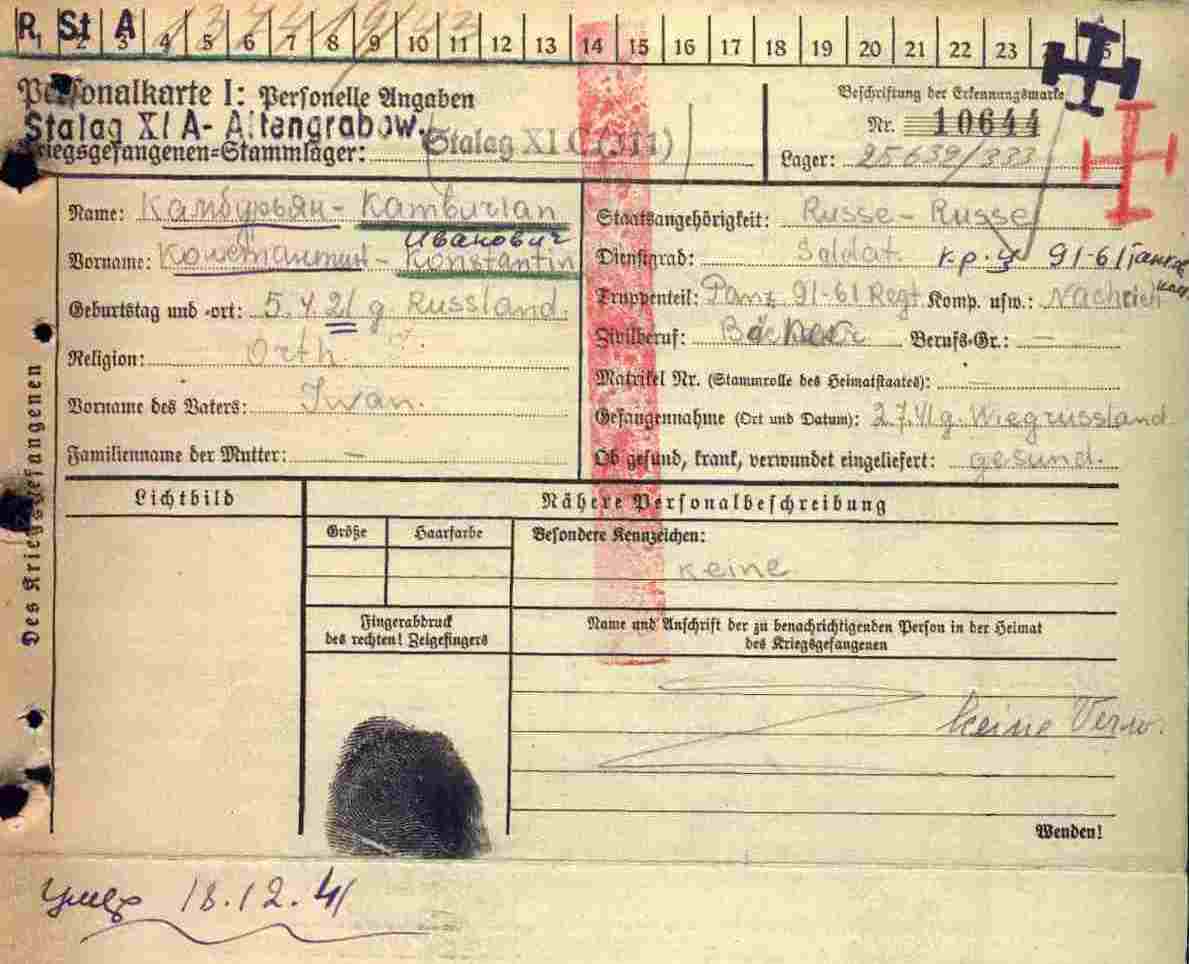 R. St A
1 2 3 4 5 6 7 8 9 10 11 12 13 14 15 16 17 18 19 20 21 22 23 25
Personalkarte I: Personelle Angaben
Stalag XI A - Altengrabow.
Kriegsgefangenen=Stammlager: Stalag XI C (311)
Beschriftung der Erkennungsmarke
Nr. 10644
Lager: 25639/333
Des Kriegsgefangenen
Name: Камбурьян - Kamburian
Иванович
Vorname: Константин - Konstantin
Geburtstag und =ort: 5. 4. 21 g Russland.
Religion: Orth
Vorname des Vaters: Iwan.
Familienname der Mutter: —
Staatsangehörigkeit: Russe - Russe
Dienstgrad: Soldat. кр. 91-61
Truppenteil: Panz 91-61 Regt Komp. usw.: Nachrich
Zivilberuf: Bäcker Berufs=Gr.: —
Matrikel Nr. (Stammrolle des Heimatstaates): —
Gefangennahme (Ort und Datum): 2.7.41g. Wiegrussland
Ob gesund, krank, verwundet eingeliefert: gesund.
Lichtbild
Nähere Personalbeschreibung
Größe Haarfarbe Besondere Kennzeichen:
keine
Fingerabdruck
des rechten! Zeigefingers
Name und Anschrift der zu benachrichtigenden Person in der Heimat
des Kriegsgefangenen
keine Verw.
Wenden!
Умер 18.12.41